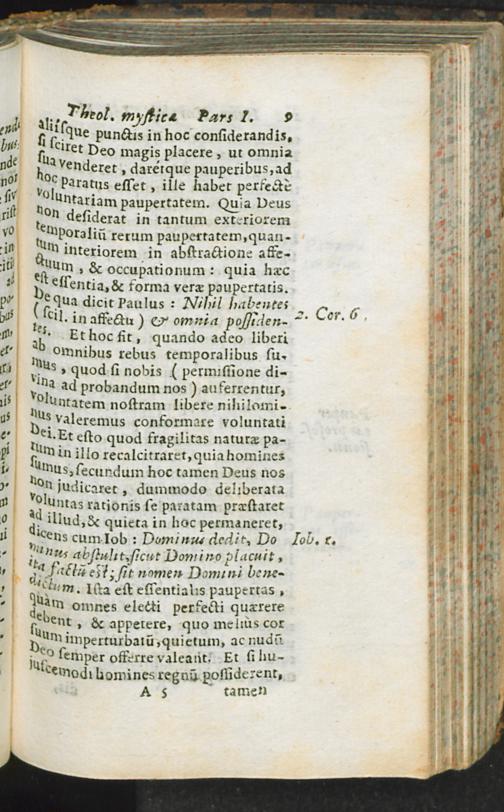 Theol. mysticæ Pars I. 9
aliisque punctis in hoc considerandis,
si sciret Deo magis placere, ut omnia
sua venderet, daretque pauperibus, ad
hoc paratus esset, ille habet perfectè
voluntariam paupertatem. Quia Deus
non desiderat in tantum exteriorem
temporaliū rerum paupertatem, quan-
tum interiorem in abstractione affe-
ctuum, & occupationum: quia hæc
est essentia, & forma veræ paupertatis.
De qua dicit Paulus: Nihil habentes
(scil. in affectu) & omnia possiden- 2. Cor. 6.
tes. Et hoc fit, quando adeo liberi
ab omnibus rebus temporalibus su-
mus, quod si nobis (permissione di-
vina ad probandum nos) auferrentur,
voluntatem nostram libere nihilomi-
nus valeremus conformare voluntati
Dei. Et esto quod fragilitas naturæ pa-
rum in illo recalcitraret, quia homines
sumus, secundum hoc tamen Deus nos
non judicaret, dummodo deliberata
voluntas rationis se paratam præstaret
ad illud, & quieta in hoc permaneret,
dicens cum Iob: Dominus dedit, Do Iob. 1.
minus abstulit, sicut Domino placuit,
ita factū est; sit nomen Domini bene-
dictum. Ista est essentialis paupertas,
quam omnes electi perfecti quærere
debent, & appetere, quo meliùs cor
suum imperturbatū, quietum, ac nudū
Deo semper offerre valeant. Et si hu-
juscemodi homines regnū possiderent,
A 5 tamen